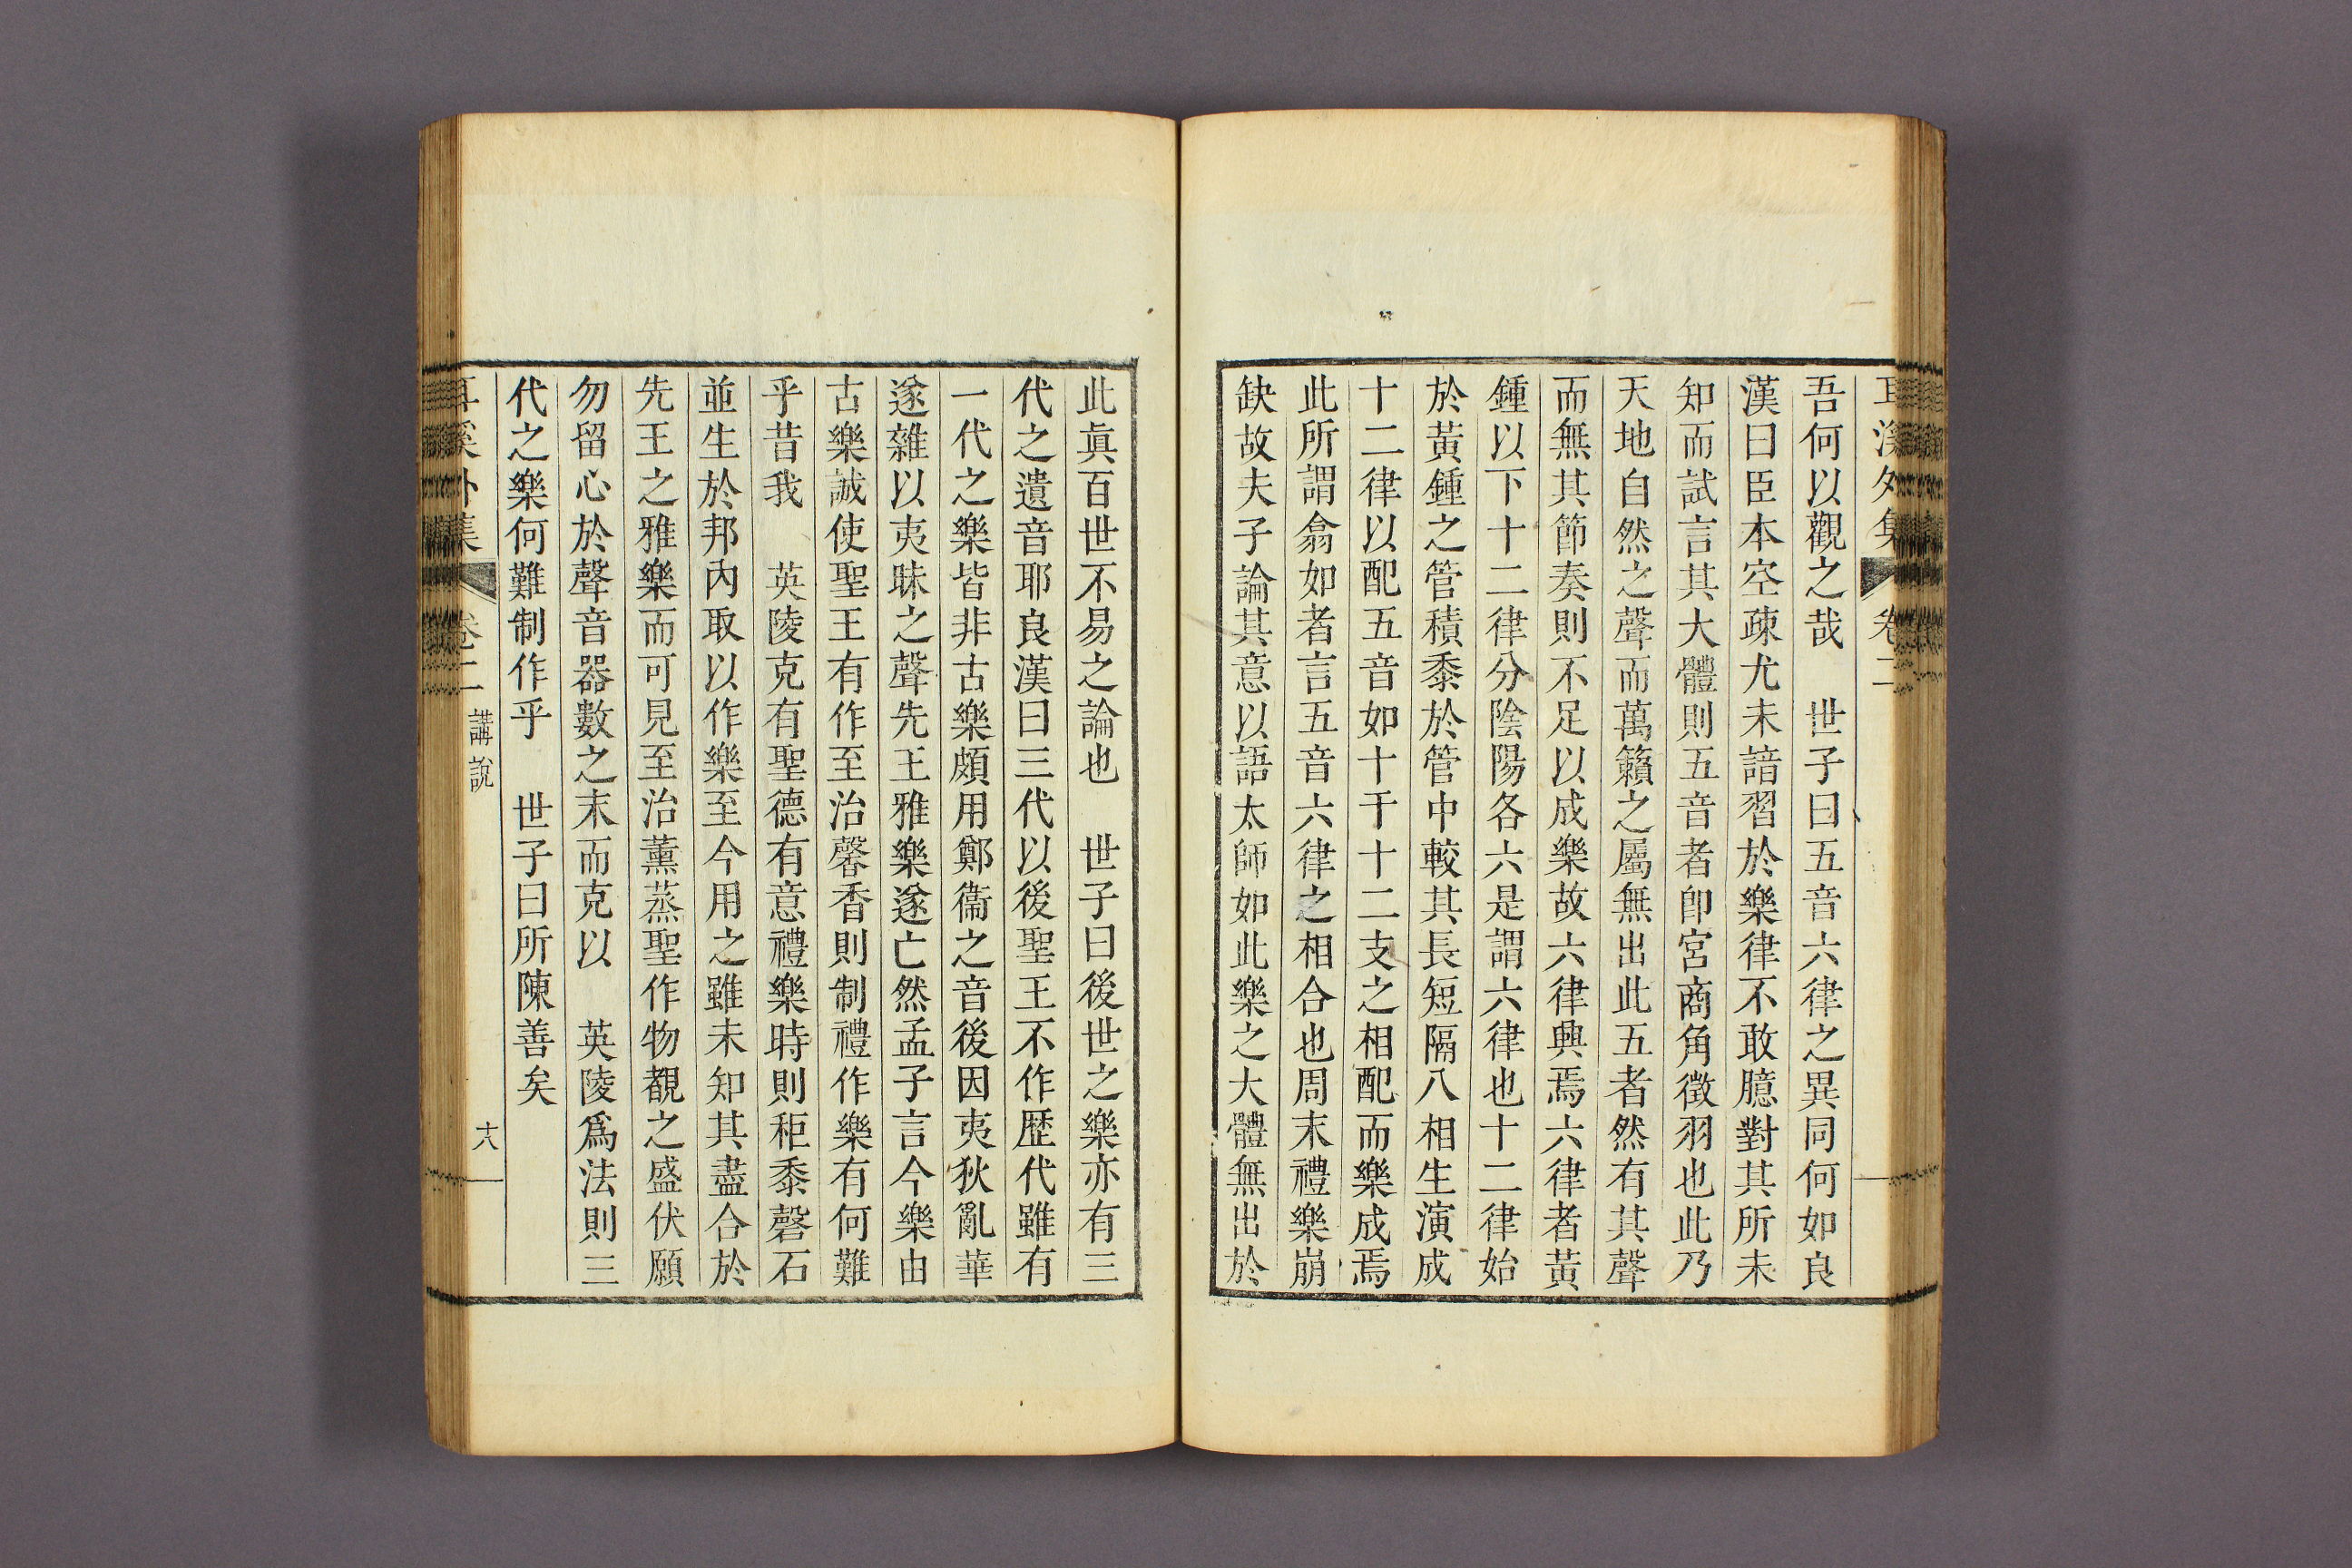 耳溪外集 卷二
吾何以觀之哉　世子曰五音六律之異同何如良
漢曰臣本空疎尤未諳習於樂律不敢臆對其所未
知而試言其大體則五音者卽宮商角徵羽也此乃
天地自然之聲而萬籟之屬無出此五者然有其聲
而無其節奏則不足以成樂故六律興焉六律者黃
鍾以下十二律分陰陽各六是謂六律也十二律始
於黃鍾之管積黍於管中較其長短隔八相生演成
十二律以配五音如十干十二支之相配而樂成焉
此所謂翕如者言五音六律之相合也周末禮樂崩
缺故夫子論其意以語太師如此樂之大體無出於
此眞百世不易之論也　世子曰後世之樂亦有三
代之遺音耶良漢曰三代以後聖王不作歷代雖有
一代之樂皆非古樂頗用鄭衞之音後因夷狄亂華
遂雜以夷昧之聲先王雅樂遂亡然孟子言今樂由
古樂誠使聖王有作至治馨香則制禮作樂有何難
乎昔我　英陵克有聖德有意禮樂時則秬黍磬石
並生於邦內取以作樂至今用之雖未知其盡合於
先王之雅樂而可見至治薰蒸聖作物覩之盛伏願
勿留心於聲音器數之末而克以　英陵爲法則三
代之樂何難制作乎　世子曰所陳善矣
耳溪外集 卷二 講說 十八